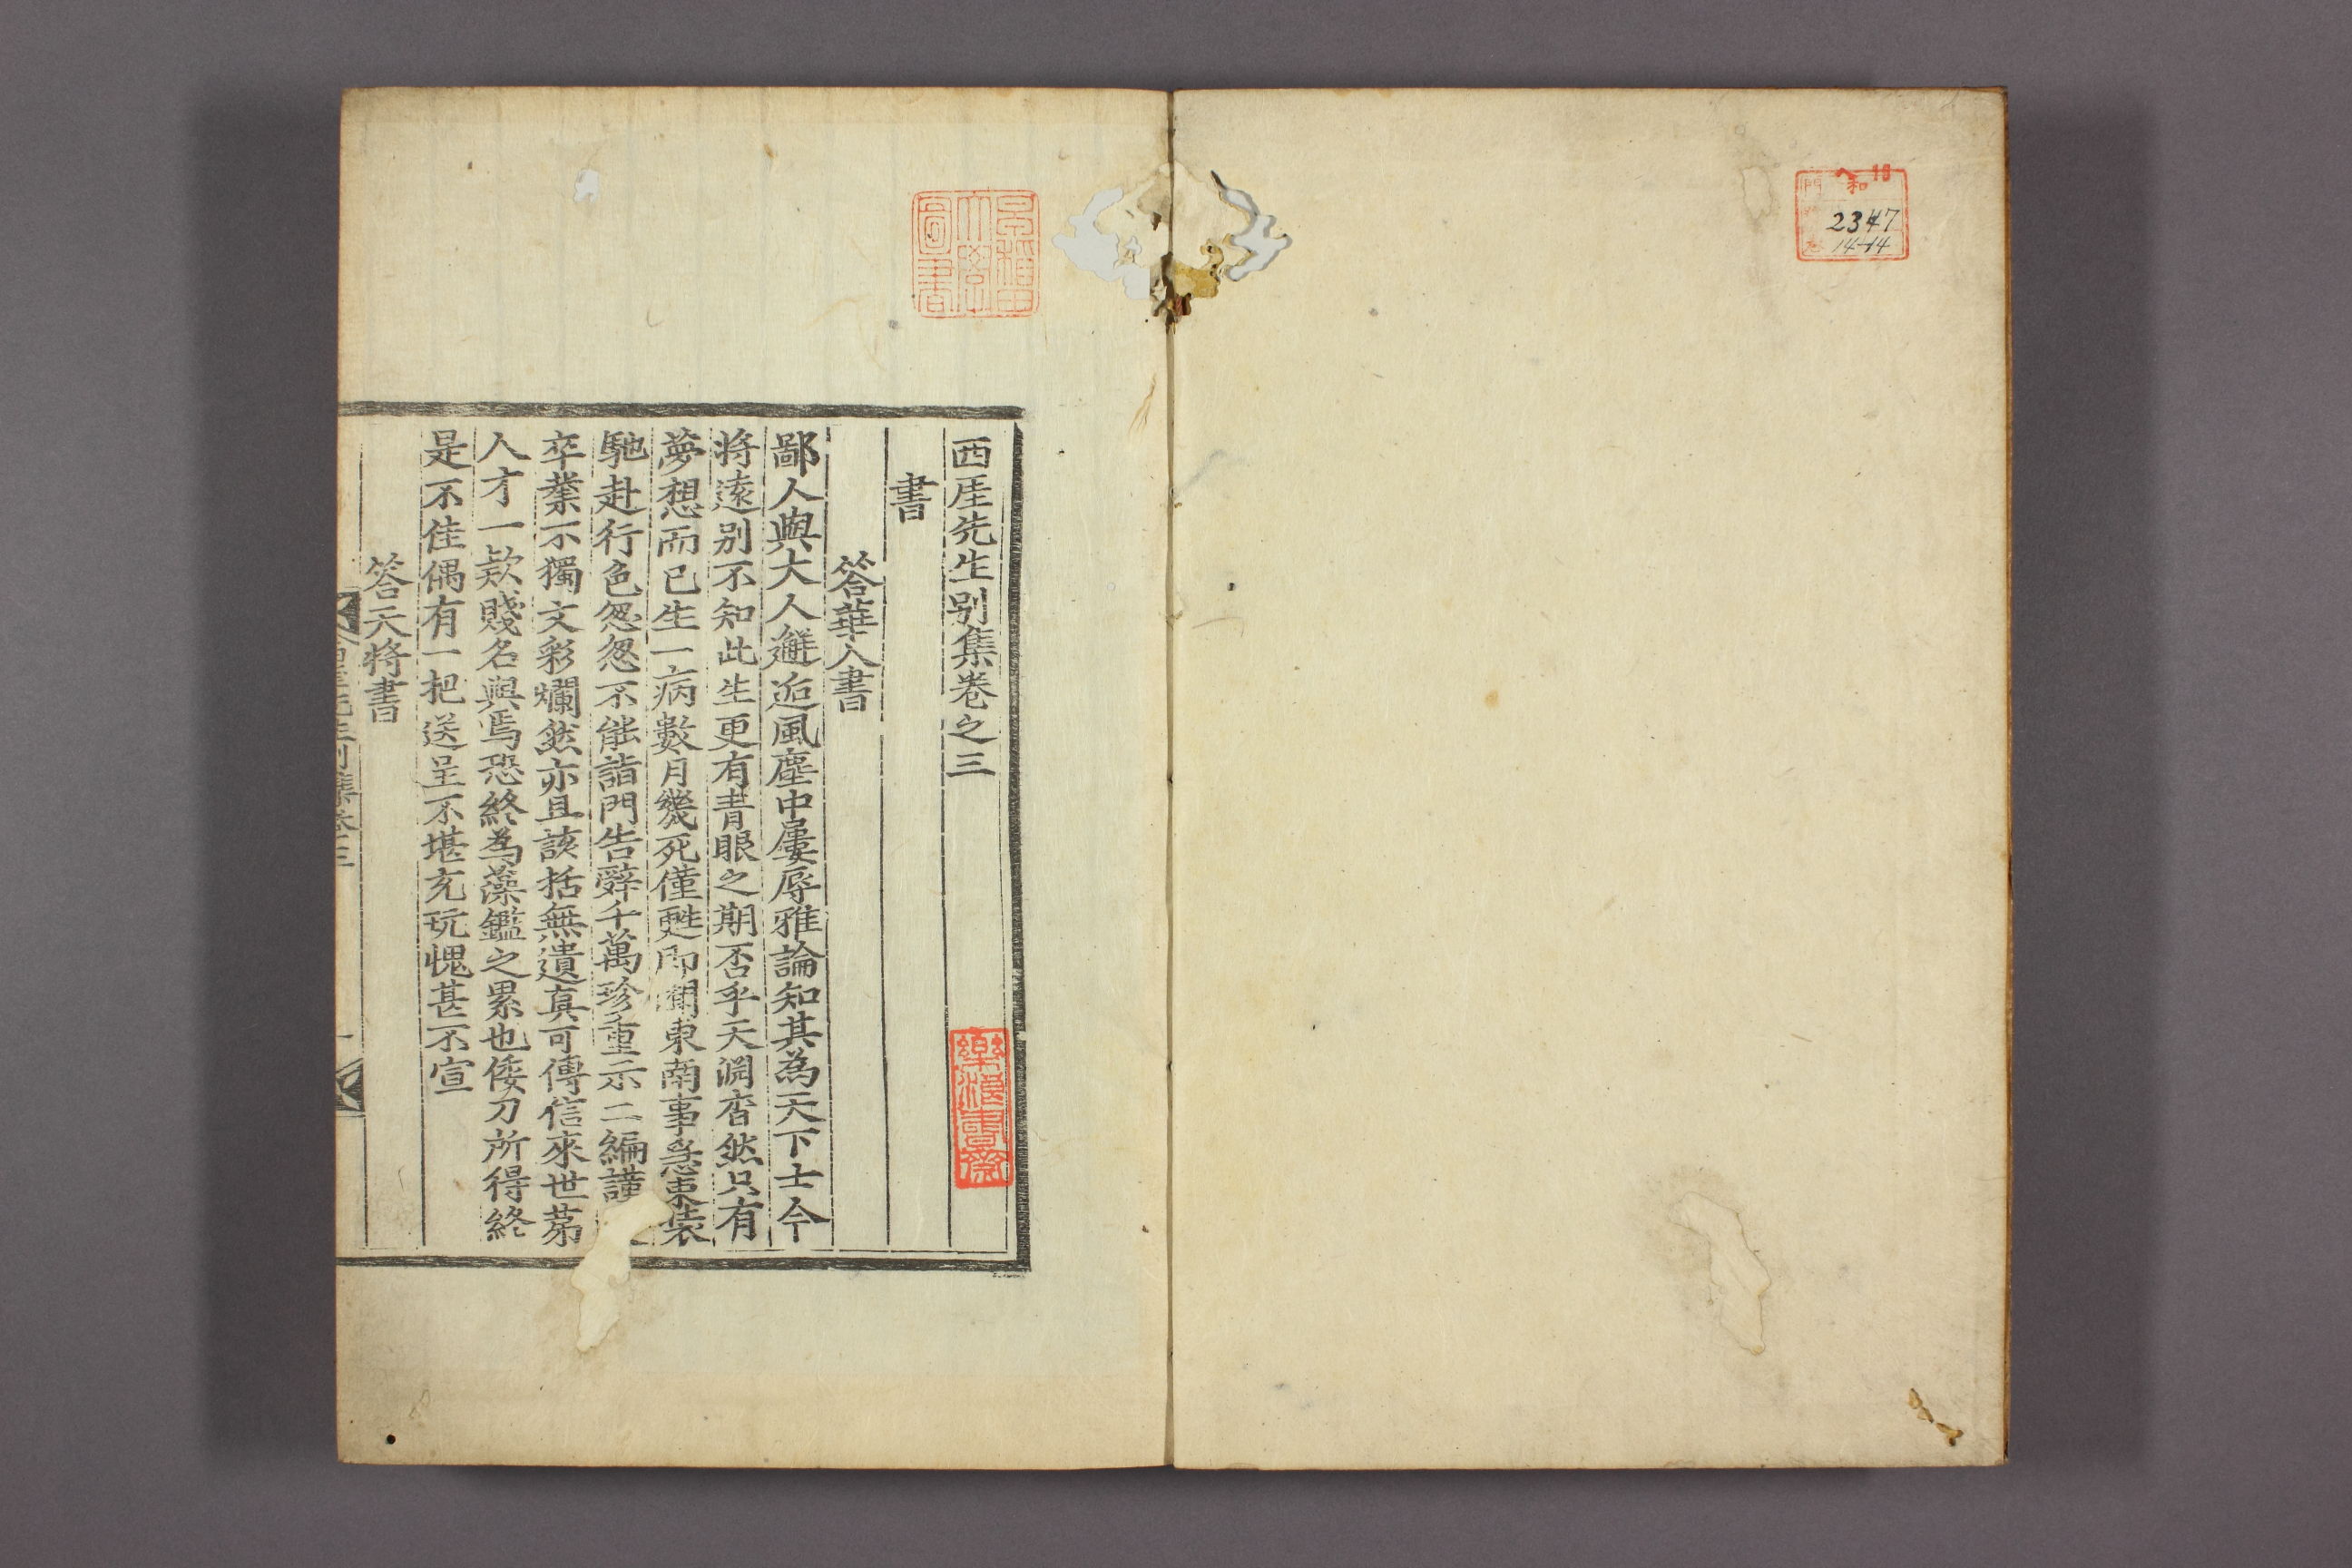 ヘ10
和
門
2347
14-14
早稲田
大學
圖書
西厓先生別集卷之三
樂浪書齋
書
答華人書
鄙人與大人邂逅風塵中屢辱雅論知其為天下士今
將遠別不知此生更有青眼之期否乎天淵杳然只有
夢想而已生一病數月幾死僅甦即聞東南事急束裝
馳赴行色怱怱不能詣門告辭千萬珍重示二編謹
卒業不獨文彩爛然亦且該括無遺真可傳信來世苐
人才一款賤名與焉恐終為藻鑑之累也倭刀所得終
是不佳偶有一把送呈不堪充玩愧甚不宣
答天將書
西厓先生別集卷三
一